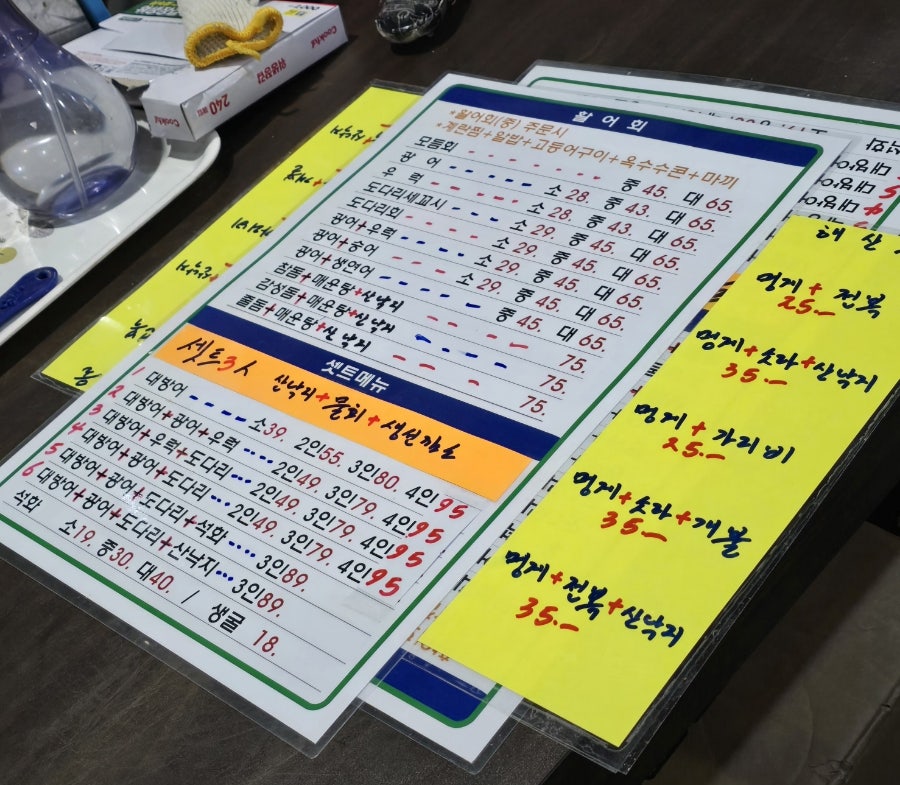 Cookhil
위생롤백
240
활 어 회
*활어회(중) 주문시
*계란찜+알밥+고등어구이+옥수수콘+마끼
모듬회 중45. 대65.
광 어 소28. 중43. 대65.
우 럭 소28. 중43. 대65.
도다리세꼬시 소29. 중45. 대65.
도다리회 소29. 중45. 대65.
광어+우럭 소29. 중45. 대65.
광어+숭어 소29. 중45. 대65.
광어+생연어 중45. 대65.
참돔+매운탕+산낙지 75.
감성돔+매운탕+산낙지 75.
줄돔+매운탕+산낙지 75.
셋트메뉴
셋트3人 산낙지+멍게+생선까스
1 대방어 소39. 2인55. 3인80. 4인95
2 대방어+광어+우럭 2인49. 3인79. 4인95
3 대방어+우럭+도다리 2인49. 3인79. 4인95
4 대방어+광어+도다리 2인49. 3인79. 4인95
5 대방어+광어+도다리+석화 3인89.
6 대방어+광어+도다리+산낙지 3인89.
석화 소19. 중30. 대40. / 생굴 18.
해 산
멍게+전복
25.-
멍게+소라+산낙지
35.-
멍게+가리비
25.-
멍게+소라+개불
35.-
멍게+전복+산낙지
35.-